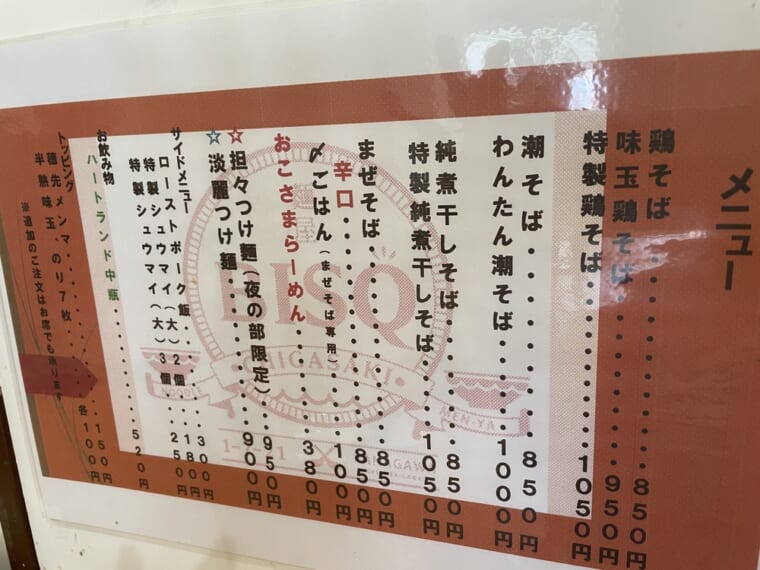 メニュー
鶏そば・・・・・・・・・・850円
味玉鶏そば・・・・・・・・950円
特製鶏そば・・・・・・・・1050円
潮そば・・・・・・・・・・850円
わんたん潮そば・・・・・・1000円
純煮干しそば・・・・・・・850円
特製純煮干しそば・・・・・1050円
まぜそば・・・・・・・・・850円
辛口・・・・・・・・・・・850円
〆ごはん(まぜそば専用)・・100円
おこさまらーめん・・・・・380円
☆担々つけ麺(夜の部限定)・・950円
☆淡麗つけ麺・・・・・・・900円
サイドメニュー
ローストポーク飯・・・・・300円
特製シュウマイ(大)2個・・・180円
特製シュウマイ(大)3個・・・250円
特製シュウマイ
お飲み物
ハートランド中瓶・・・・・520円
トッピング
穂先メンマ・・・・・・・・150円
半熟味玉・のり7枚・・・・各100円
※追加のご注文はお席でも承ります
BISQ
CHIGASAKI
NOODLE
MEN-YA